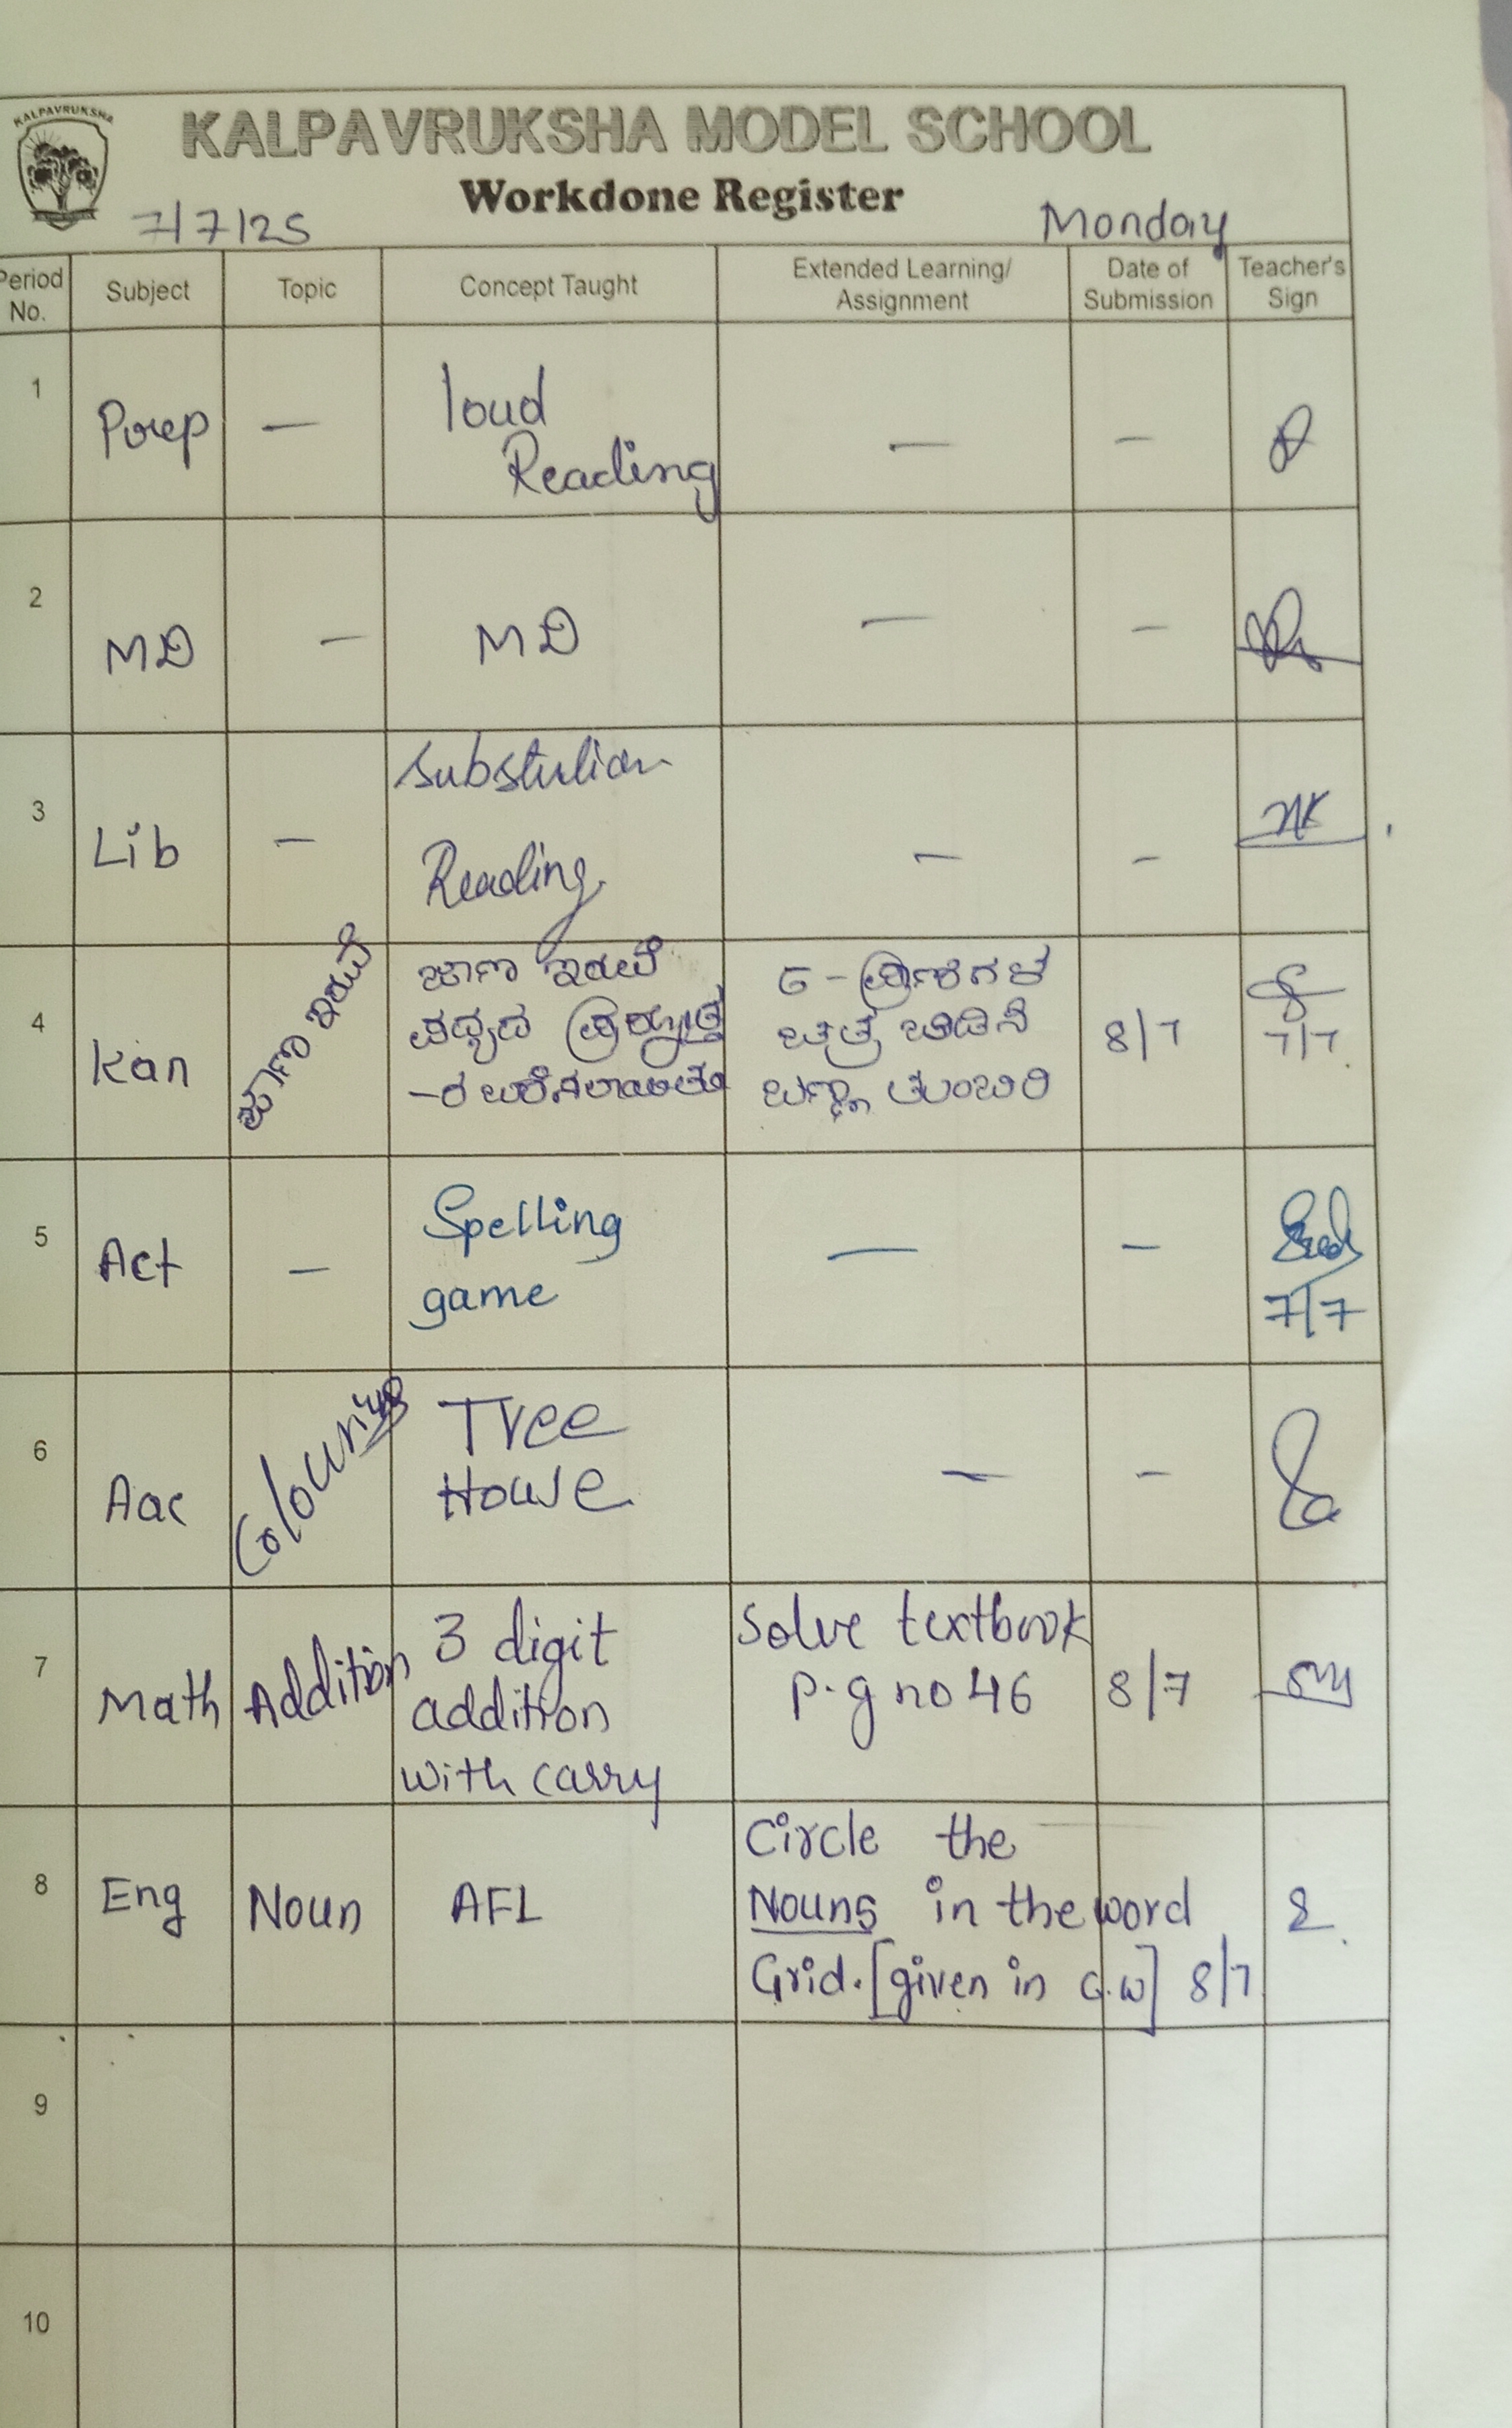 KALPAVRUKSHA
KALPAVRUKSHA MODEL SCHOOL
Workdone Register
7/7/25 Monday
Period No. Subject Topic Concept Taught Extended Learning/ Assignment Date of Submission Teacher's Sign
1 Prep — loud
Reading — —
2 MD — MD — —
3 Lib — Substution
Reading. — —
4 Kan ಜಾಣ ಇರುವೆ ಜಾಣ ಇರುವೆ
ಪದ್ಯದ ಪ್ರಶ್ನೋತ್ತ
-ರ ಬರೆಸಲಾಯಿತು
5-ಪ್ರಾಣಿಗಳ
ಚಿತ್ರ ಬಿಡಿಸಿ
ಬಣ್ಣ ತುಂಬಿರಿ 8/7 7/7
5 Act — Spelling
game — — 7/7
6 Aac Colouring Tree
House — —
7 Math Addition 3 digit
addition
with carry
Solve textbook
p.g no 46 8/7
8 Eng Noun AFL Circle the
Nouns in the word
Grid. [given in C.W] 8/7
9
10